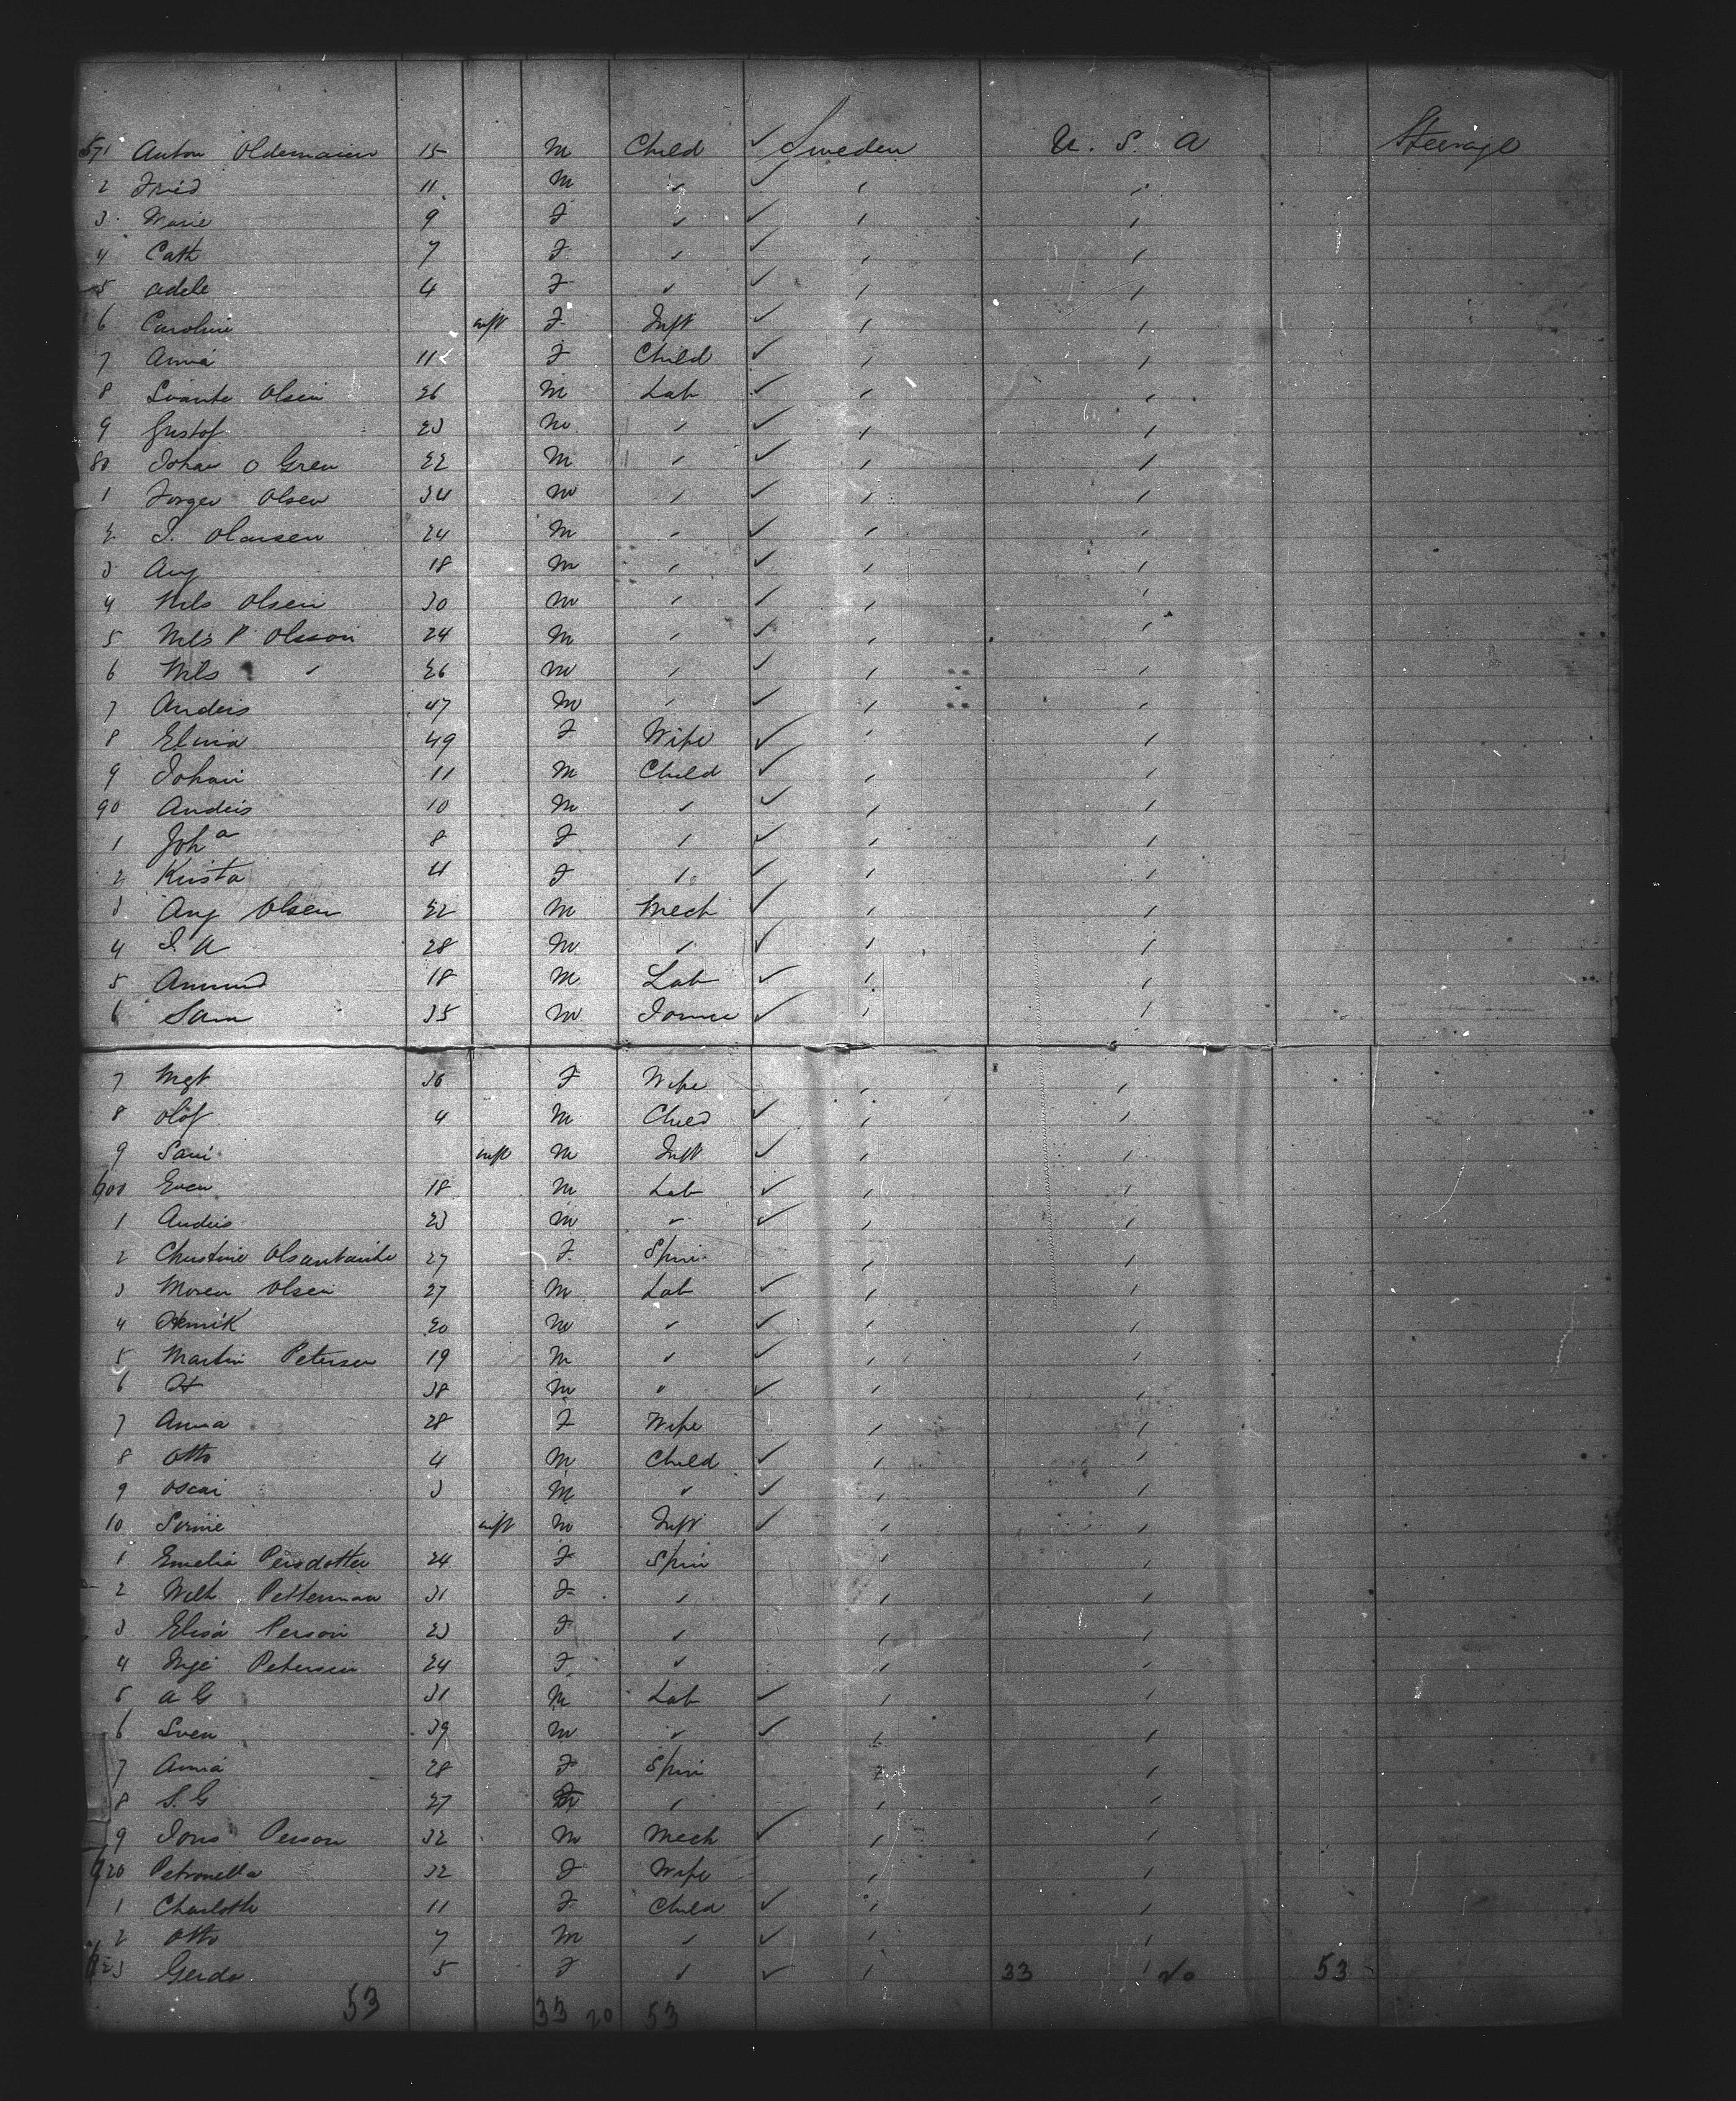 571 Anton Oldemaien 15 M Child ✓ Sweden U. S. A Steerage
2 Fried 11 M " ✓ " "
3 Marie 9 F " ✓ " "
4 Cath 7 F " ✓ " "
5 Adele 4 F " ✓ " "
6 Caroline inft F Inft ✓ " "
7 Anna 11 F Child ✓ " "
8 Svante Olsen 26 M Lab ✓ " "
9 Gustof 23 M " ✓ " "
80 Johan O Gren 22 M " ✓ " "
1 Jorgen Olsen 34 M " ✓ " "
2 J. Olausen 24 M " ✓ " "
3 Aug 18 M " ✓ " "
4 Nils Olsen 30 M " ✓ " "
5 Nels P Olsson 24 M " ✓ " "
6 Nils " 26 M " ✓ " "
7 Anders 47 M " ✓ " "
8 Elina 49 F Wife ✓ " "
9 Johan 11 M Child ✓ " "
90 Anders 10 M " ✓ " "
1 Joha 8 F " ✓ " "
2 Krista 4 F " ✓ " "
3 Aug Olsen 22 M Mech ✓ " "
4 J. A 28 M " ✓ " "
5 Amund 18 M Lab ✓ " "
6 Sam 35 M ✓ " "
7 Mgt 36 F Wife " "
8 Olof 4 M Child ✓ " "
9 inft M Inft ✓ " "
600 Even 18 M Lab ✓ " "
1 Anders 23 M " ✓ " "
2 Christine 27 F Spin " "
3 Moren Olsen 27 M Lab ✓ " "
4 Henrik 20 M " ✓ " "
5 Martin Petersen 19 M " ✓ " "
6 H 38 M " ✓ " "
7 Anna 28 F Wife " "
8 Otto 4 M Child ✓ " "
9 Oscar 3 M " ✓ " "
10 inft M Inft ✓ " "
1 Emelia Persdotter 24 F Spin " "
2 Wilh Petterman 31 F " " "
3 Elisa Person 23 F " " "
4 Inge Petersen 24 F " " "
5 A G 31 M Lab ✓ " "
6 Sven 39 M " ✓ " "
7 Anna 28 F Spin " "
8 S. G 27 " " "
9 Jons Person 32 M Mech ✓ " "
620 Petronella 32 F Wife " "
1 Charlotte 11 F Child ✓ " "
2 Otto 7 M " ✓ " "
623 Gerda 5 F " ✓ " 33 " 20 53
53 33 20 53